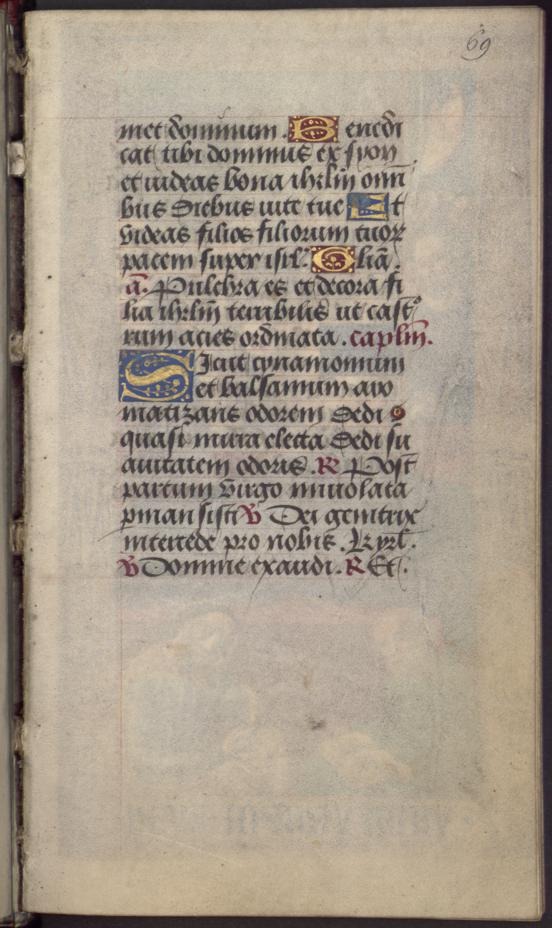 69
met dominum. Benedi
cat tibi dominus ex syon
et uideas bona ihrlm omi
bus diebus uite tue Et
videas filios filiorum tuor
pacem super isrl. Glia
a. Pulchra es et decora fi
lia ihrlm terribilis ut cast
rum acies ordinata. caplm.
Sicut cynamomum
et balsamum aro
matizans odorem dedi
quasi mirra electa dedi su
auitatem odoris. R Post
partum virgo inuiolata
pman sisti V Dei genitrix
intercede pro nobis. Kyrl.
V Domine exaudi. R Et.